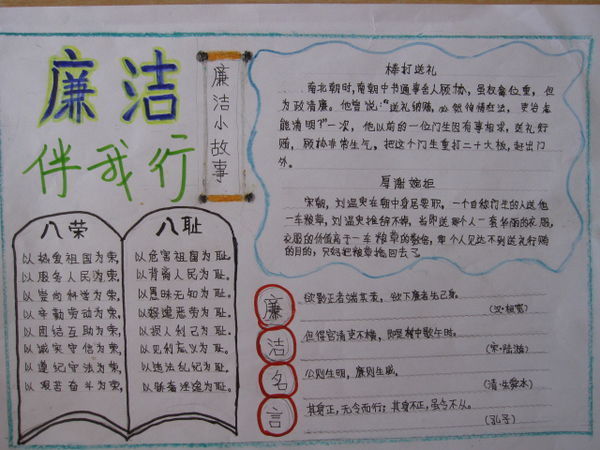 廉洁
伴我行
廉洁小故事
棒打送礼
南北朝时,南朝中书通事舍人顾协,虽权禽位重,但
为政清廉。他曾说:"送礼纳贿,必然徇情枉法,吏治岂
能清明?"一次,他以前的一位门生因有事相求,送礼行
贿,顾协非常生气,把这个门生重打二十大板,赶出门
外。
厚谢婉拒
宋朝,刘温叟在朝中身居要职,一个自称门生的人送他
一车粮草,刘温叟推辞不掉,当即送那个人一套华丽的衣服,
衣服的价值高于一车粮草的数倍,那个人见达不到送礼行贿
的目的,只好把粮草拖回去了
八荣
以热爱祖国为荣,
以服务人民为荣,
以崇尚科学为荣,
以辛勤劳动为荣,
以团结互助为荣,
以诚实守信为荣,
以遵纪守法为荣,
以艰苦奋斗为荣,
八耻
以危害祖国为耻。
以背离人民为耻。
以愚昧无知为耻。
以好逸恶劳为耻。
以损人利己为耻。
以见利忘义为耻。
以违法乱纪为耻。
以骄奢淫逸为耻。
廉洁名言
欲影正者端其表,欲下廉者先己身。
(汉·桓宽)
但得官清吏不横,即是村中歌午时。
(宋·陆游)
公则生明,廉则生威。
(清·朱舜水)
其身正,无令而行;其身不正,虽令不从。
(孔子)